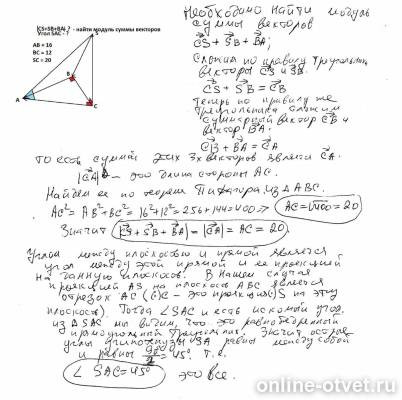 |CS+SB+BA|-? - найти модуль суммы векторов
Угол SAC - ?
AB = 16
BC = 12
SC = 20
S
B
A
C
Необходимо найти модуль
суммы векторов
CS + SB + BA;
Сложим по правилу треугольн.
векторы CS и SB.
CS + SB = CB
Теперь по правилу же
треугольника сложим
суммарный вектор CB и
вектор BA:
CB + BA = CA
То есть суммой этих 3х векторов является CA.
|CA| — это длина стороны AC.
Найдем ее по теореме Пифагора из ΔABC.
AC² = AB² + BC² = 16² + 12² = 256 + 144 = 400 => AC = √400 = 20
Значит |CS + SB + BA| = |CA| = AC = 20.
Углом между плоскостью и прямой является
угол между этой прямой и ее проекцией
на данную плоскость. В нашем случае
проекцией AS на плоскость ABC является
отрезок AC (C - это проекция S на эту
плоскость). Тогда ∠SAC и есть искомый угол.
Из ΔSAC мы видим, что это равнобедренный
прямоугольный треугольник. Значит острые
углы SA равны между собой
и равны 90/2 = 45°. Т.е.
∠ SAC = 45° это все.
online-otvet.ru